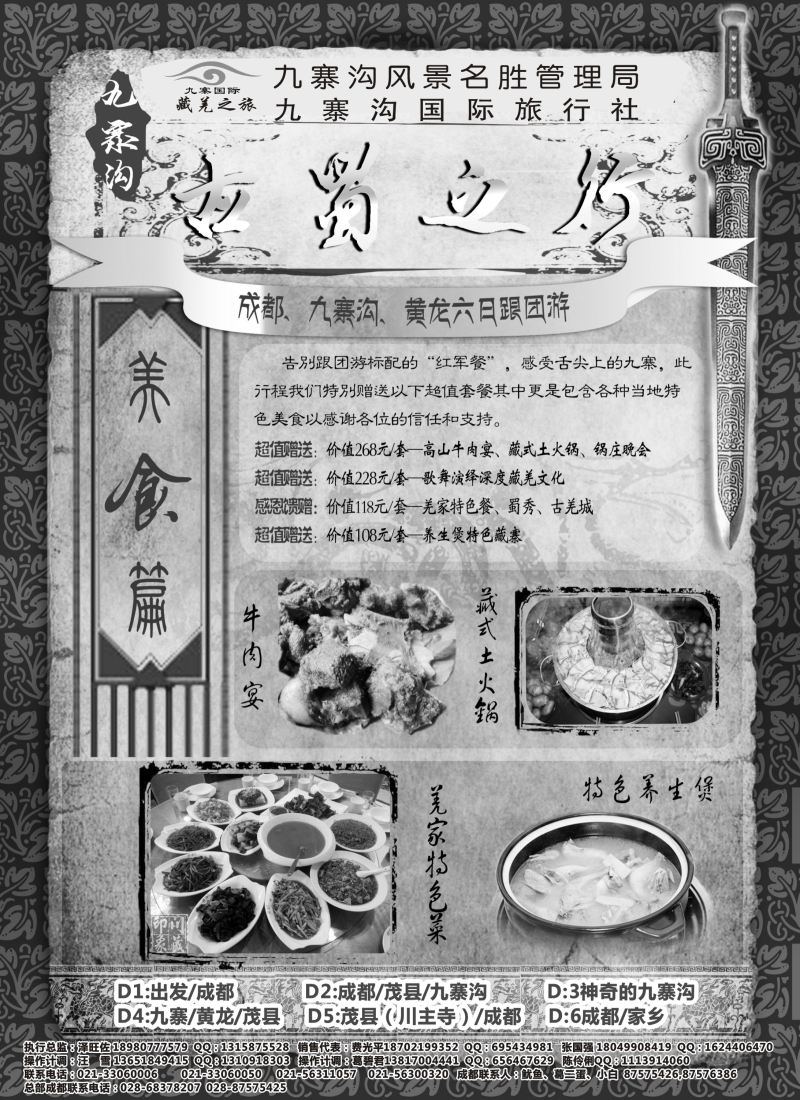 九寨沟
九寨国际
藏羌之旅
九寨沟风景名胜管理局
九寨沟国际旅行社
古蜀之行
成都、九寨沟、黄龙六日跟团游
美食篇
告别跟团游标配的“红军餐”，感受舌尖上的九寨，此
行程我们特别赠送以下超值套餐其中更是包含各种当地特
色美食以感谢各位的信任和支持。
超值赠送：价值268元/套—高山牛肉宴、藏式土火锅、锅庄晚会
超值赠送：价值228元/套—歌舞演绎深度藏羌文化
感恩馈赠：价值118元/套—羌家特色餐、蜀秀、古羌城
超值赠送：价值108元/套—养生煲特色藏寨
牛肉宴
藏式土火锅
羌家特色菜
特色养生煲
D1:出发/成都 D2:成都/茂县/九寨沟 D:3神奇的九寨沟
D4:九寨/黄龙/茂县 D5:茂县（川主寺）/成都 D:6成都/家乡
执行总监：泽旺佐18980777579 QQ：1315875528 销售代表：费光平18702199352 QQ：695434981 张国强18049908419 QQ：1624406470
操作计调：汪雪 13651849415 QQ：1310918303 操作计调：葛碧君13817004441 QQ：656467629 陈伶俐QQ：1113914060
联系电话：021-33060006 021-33060050 021-56311057 021-56300320 成都联系人：鱿鱼、葛三蛋、小白 87575426,87576386
总部成都联系电话：028-68378207 028-87575425